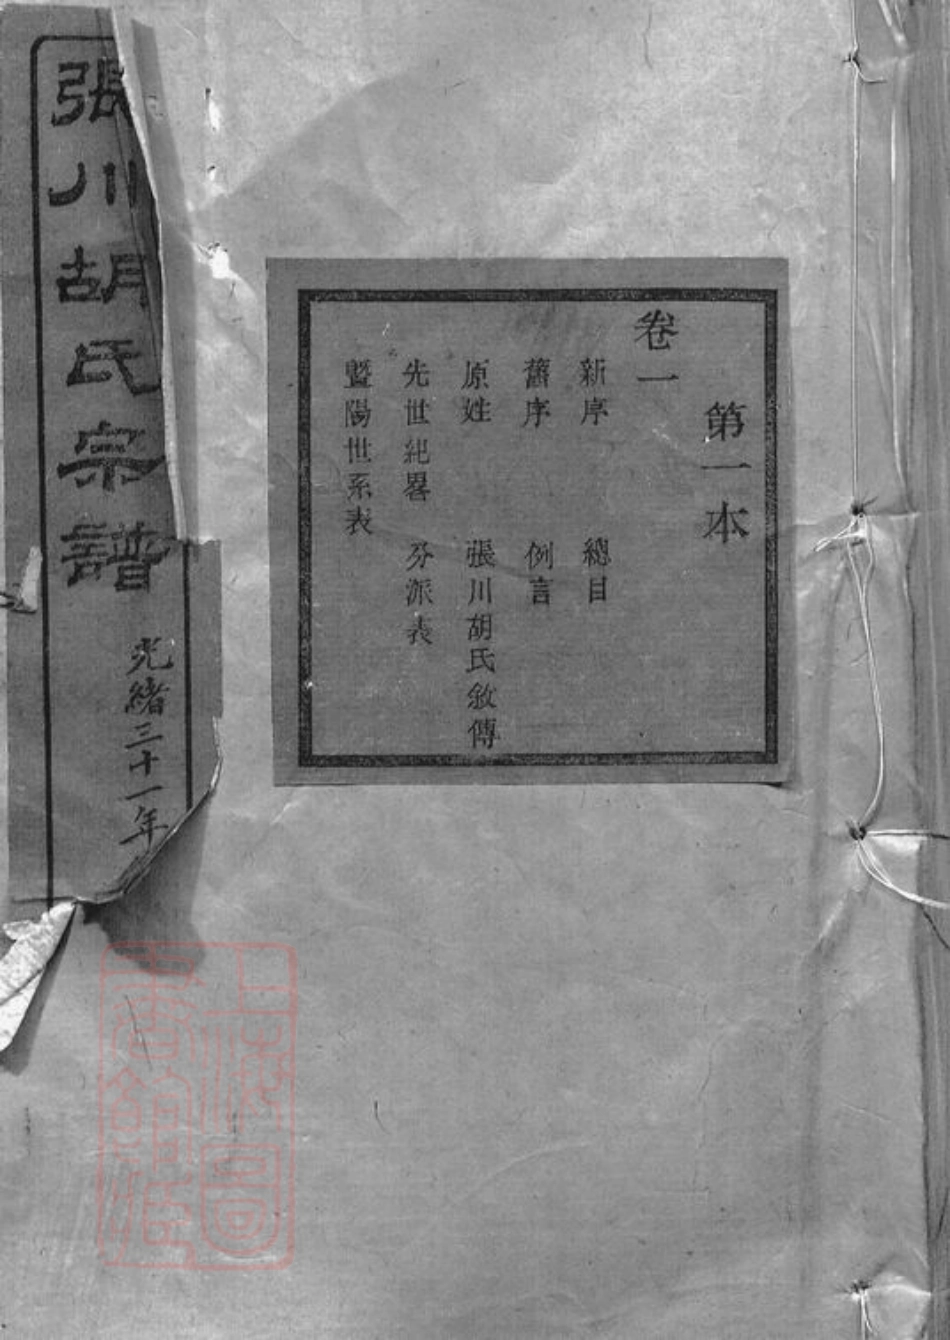 第一本
卷一
新序 總目
舊序 例言
原姓 張川胡氏敘傳
先世紀畧 分派表
暨陽世系表
張川胡氏宗譜
光緒三十一年
上海圖書館藏